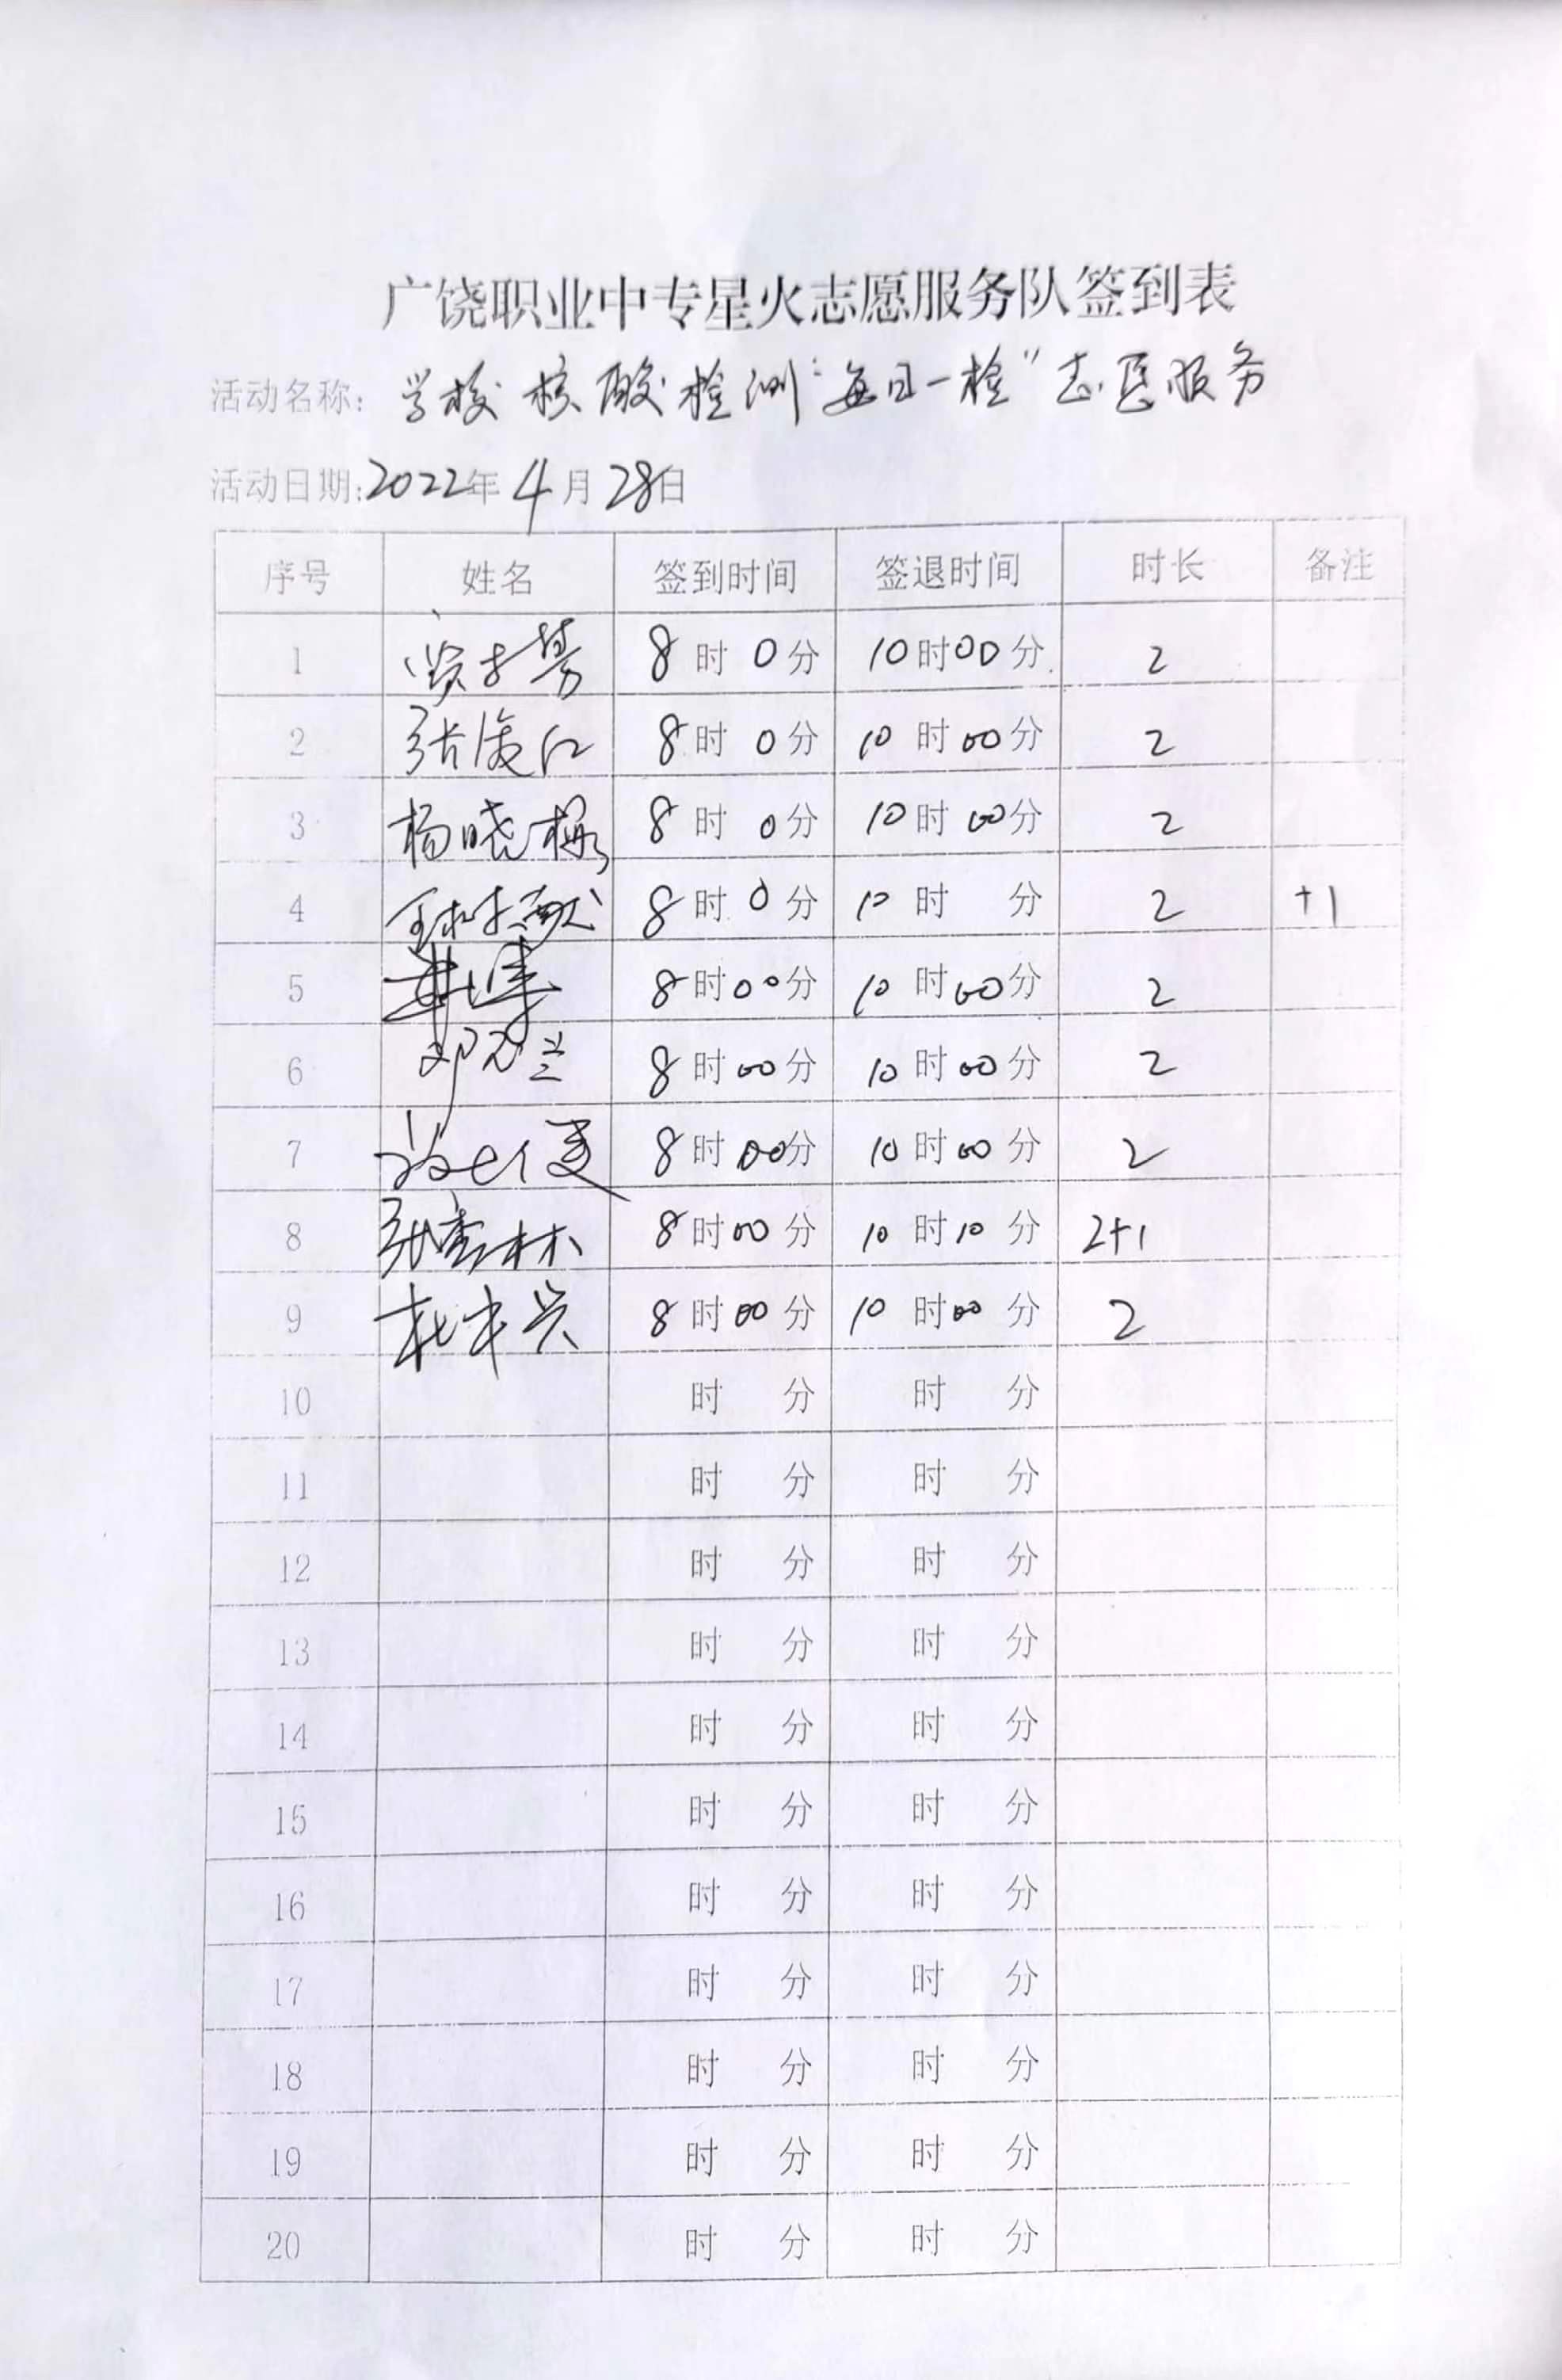 广饶职业中专星火志愿服务队签到表
活动名称: 学校核酸检测"每日一检"志愿服务
活动日期:2022年4月28日
序号 姓名 签到时间 签退时间 时长 备注
1 8时0分 10时00分 2
2 张俊江 8时0分 10时00分 2
3 杨晓梅 8时0分 10时00分 2
4 8时0分 10时 分 2 +1
5 8时00分 10时00分 2
6 8时00分 10时00分 2
7 8时00分 10时00分 2
8 8时00分 10时10分 2+1
9 8时00分 10时00分 2
10 时 分 时 分
11 时 分 时 分
12 时 分 时 分
13 时 分 时 分
14 时 分 时 分
15 时 分 时 分
16 时 分 时 分
17 时 分 时 分
18 时 分 时 分
19 时 分 时 分
20 时 分 时 分